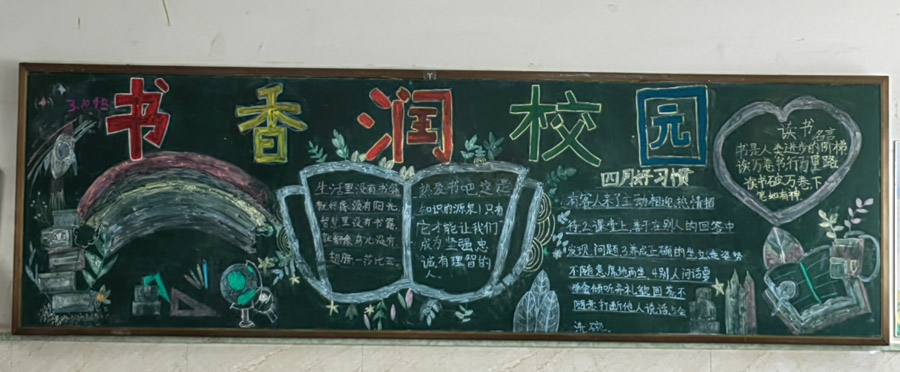 3.10班
书香润校园
生活里没有书籍
就好像没有阳光
智慧里没有书籍
就好像鸟儿没有
翅膀一莎士比
热爱书吧这是
知识的源泉!只有
它才能让我们
成为坚强忠
诚有理智的
人
四月好习惯
有客人来了主动相迎热情招
待2课堂上善于在别人的回答中
发现问题3养成正确的坐立走姿势
不随意席地而坐4别人问话要
学会倾听并礼貌回答不
随意打断他人说话5会
洗碗
读书名言
书是人类进步的阶梯
读万卷书行万里路
读书破万卷下
笔如有神